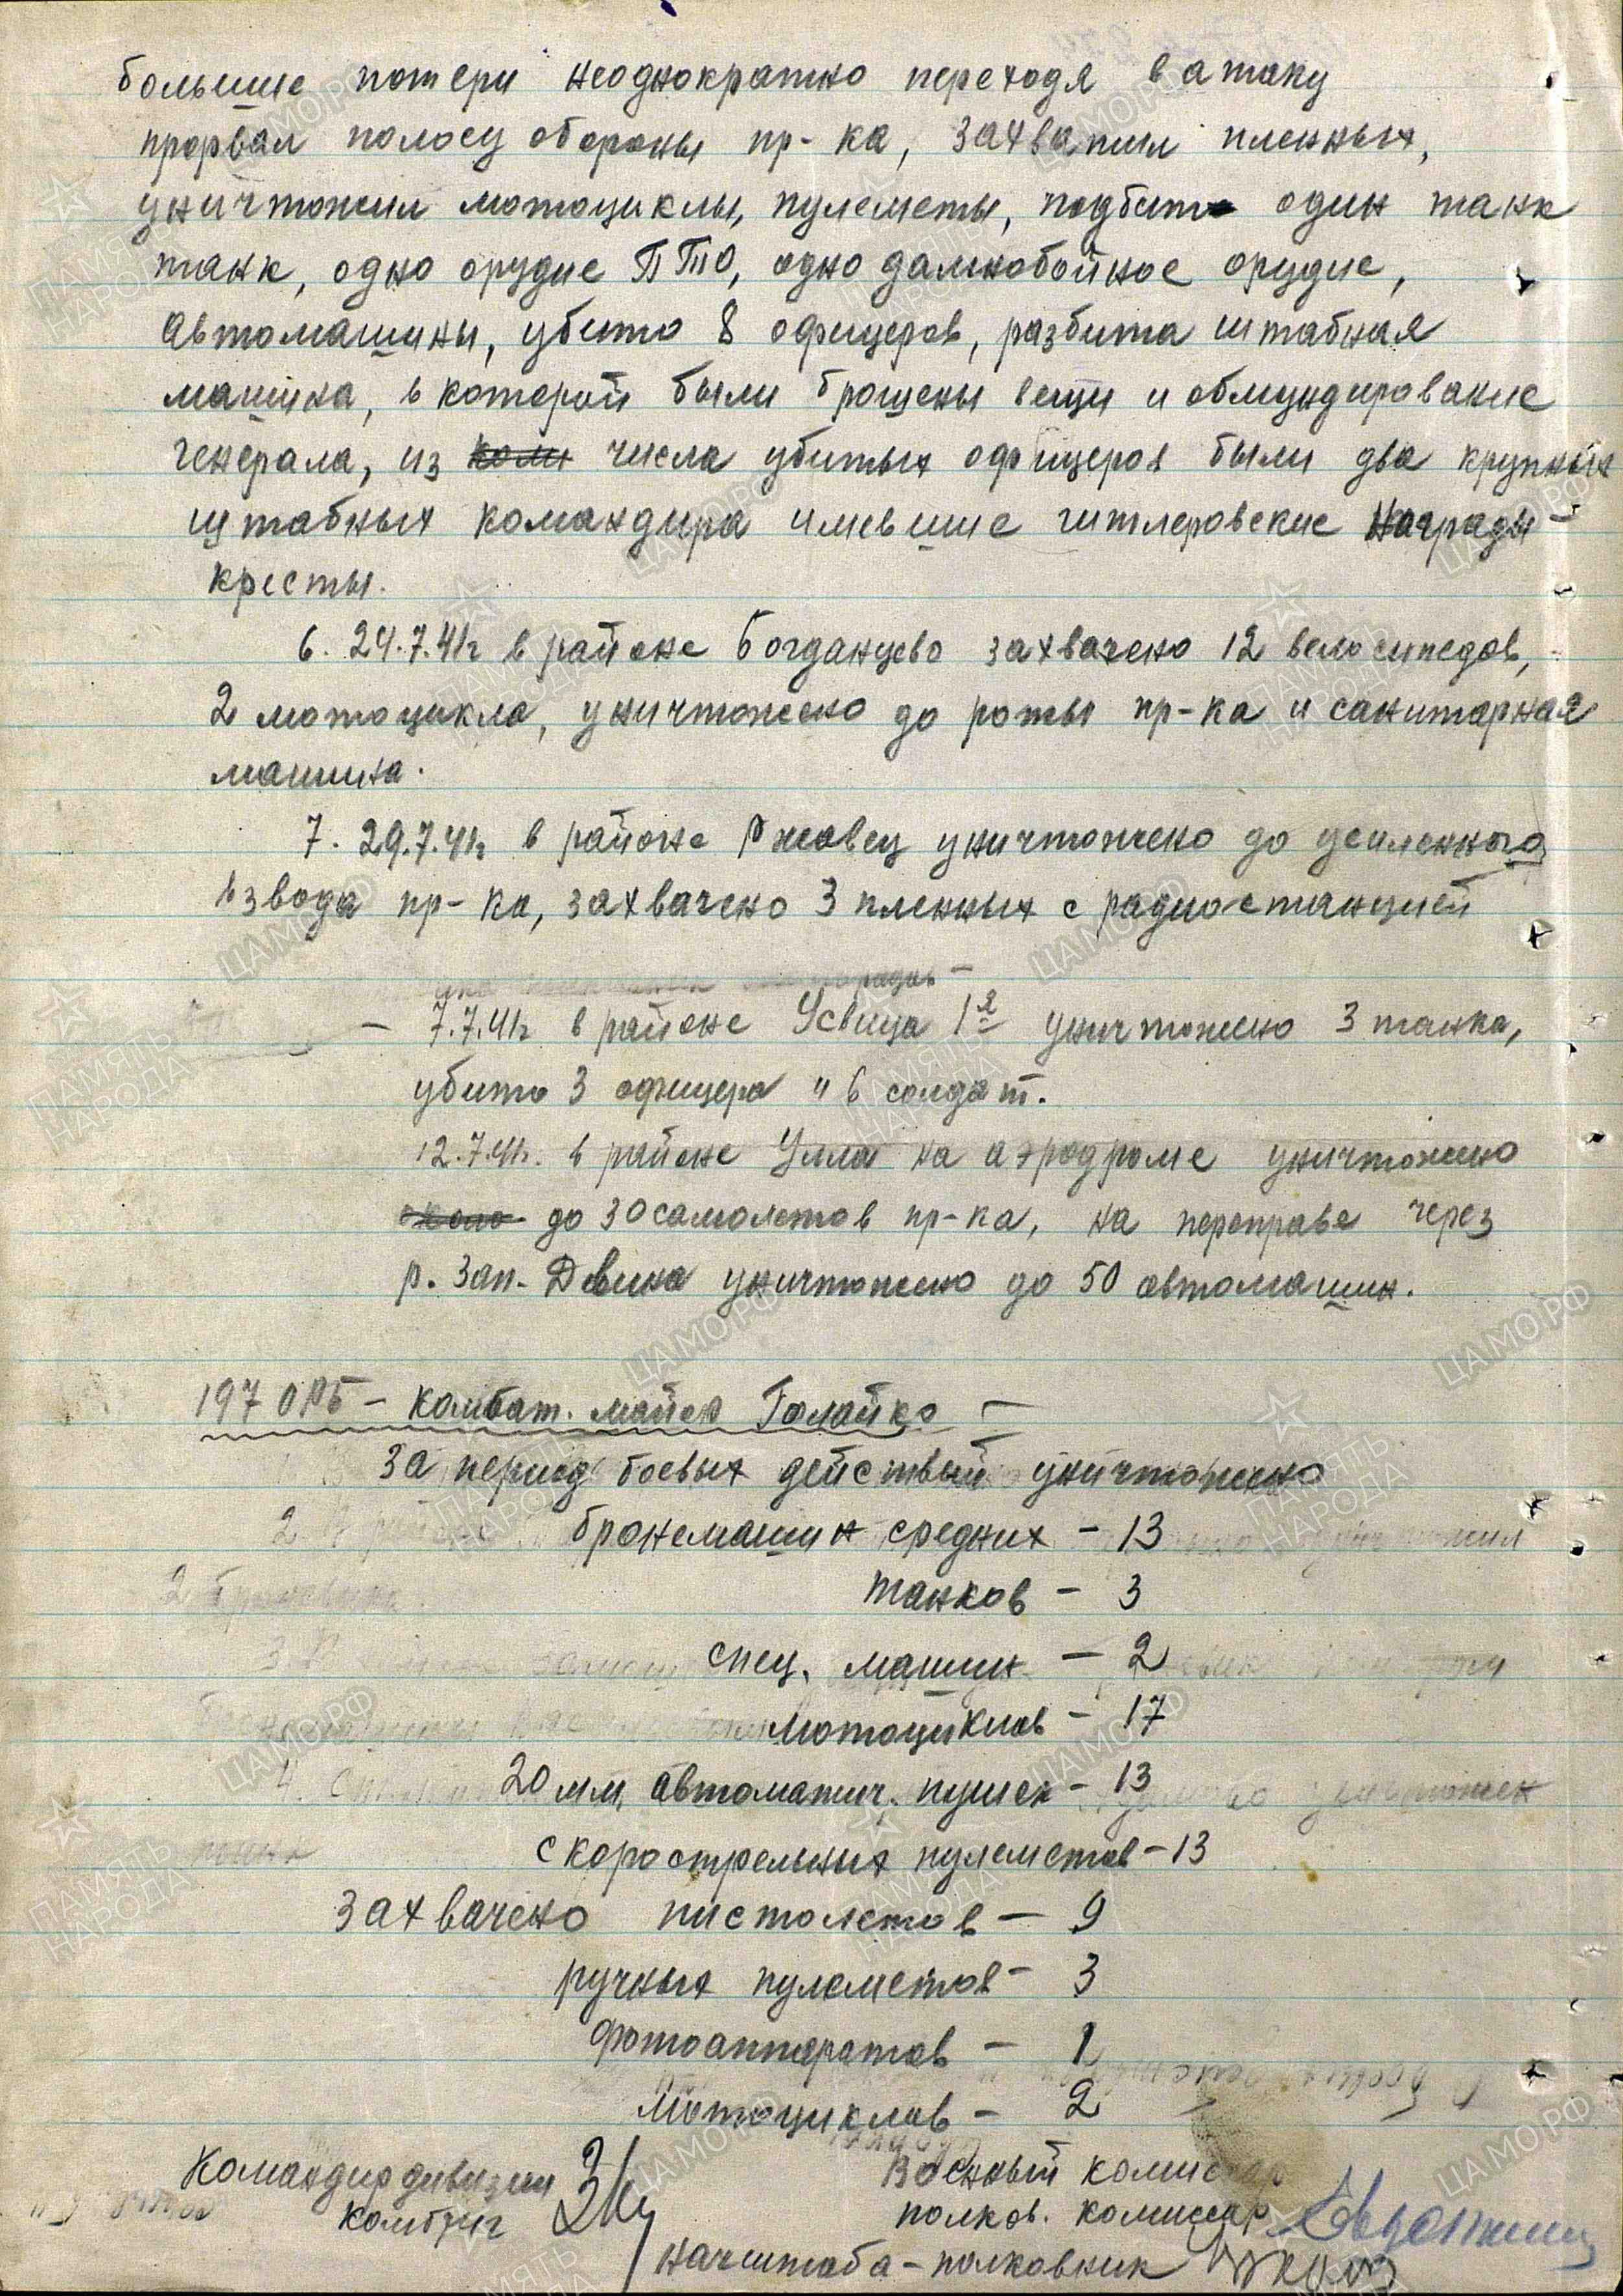 большие потери неоднократно переходя в атаку
прорвал полосу обороны пр-ка, захватил пленных,
уничтожил мотоциклы, пулеметы, подбито один танк
танк, одно орудие ПТО, одно дальнобойное орудие,
автомашины, убито 8 офицеров, разбита штабная
машина, в которой были брошены вещи и обмундирование
генерала, из числа убитых офицеров были два крупных
штабных командира имевшие гитлеровские награды-
кресты.
6. 24.7.41г в районе Богданцево захвачено 12 велосипедов,
2 мотоцикла, уничтожено до роты пр-ка и санитарная
машина.
7. 29.7.41г в районе Ржавец уничтожено до усиленного
взвода пр-ка, захвачено 3 пленных с радиостанцией
— 7.7.41г в районе Усвица 1я уничтожено 3 танка,
убито 3 офицера и 6 солдат.
12.7.41г. в районе Улла на аэродроме уничтожено
около до 30 самолетов пр-ка, на переправе через
р. Зап. Двина уничтожено до 50 автомашин.
197 ОРБ — комбат. майор Голайко —
За период боевых действий уничтожено
бронемашин средних - 13
танков - 3
спец. машин - 2
мотоциклов - 17
20 мм. автоматич. пушек - 13
скорострельных пулеметов - 13
захвачено пистолетов - 9
ручных пулеметов - 3
фотоаппаратов - 1
мотоциклов - 2
Командир дивизии
комбриг
Военный комиссар
полков. комиссар
начштаба - полковник
ПАМЯТЬ НАРОДА
ЦАМО.РФ